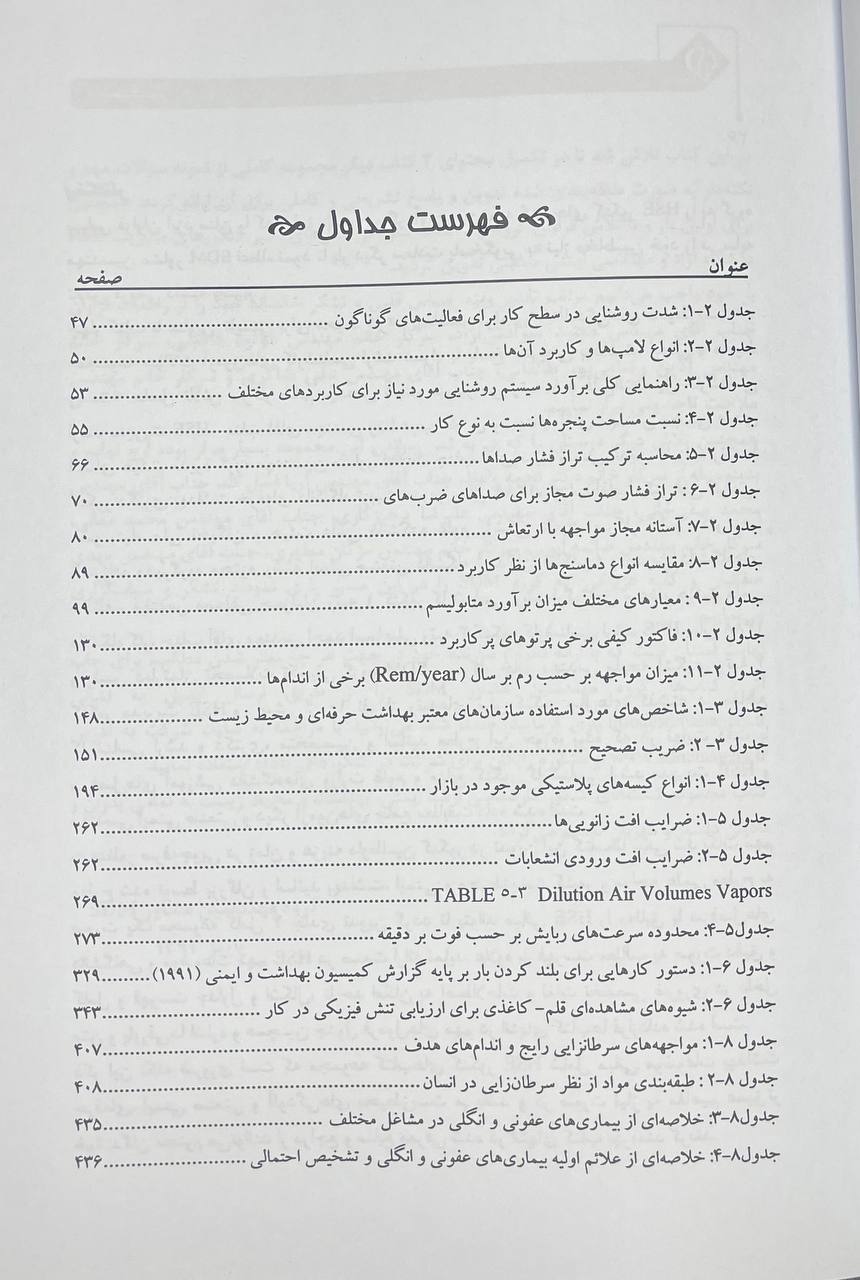 فهرست جداول
عنوان
صفحه
جدول ۲-۱: شدت روشنایی در سطح کار برای فعالیت‌های گوناگون ........................................ ۴۷
جدول ۲-۲: انواع لامپ‌ها و کاربرد آن‌ها .................................................................... ۵۰
جدول ۲-۳: راهنمایی کلی برآورد سیستم روشنایی مورد نیاز برای کاربردهای مختلف ...................... ۵۳
جدول ۲-۴: نسبت مساحت پنجره‌ها نسبت به نوع کار ........................................................ ۵۵
جدول ۲-۵: محاسبه ترکیب تراز فشار صداها................................................................. ۶۶
جدول ۲-۶: تراز فشار صوت مجاز برای صداهای ضرب‌های ................................................ ۷۰
جدول ۲-۷: آستانه مجاز مواجهه با ارتعاش ................................................................. ۸۰
جدول ۲-۸: مقایسه انواع دماسنج‌ها از نظر کاربرد............................................................ ۸۹
جدول ۲-۹: معیارهای مختلف میزان برآورد متابولیسم....................................................... ۹۹
جدول ۲-۱۰: فاکتور کیفی برخی پرتوهای پرکاربرد .........................................................۱۳۰
جدول ۲-۱۱: میزان مواجهه بر حسب رم بر سال (Rem/year) برخی از اندام‌ها ...........................۱۳۰
جدول ۳-۱: شاخص‌های مورد استفاده سازمان‌های معتبر بهداشت حرفه‌ای و محیط زیست .................۱۴۸
جدول ۳- ۲: ضریب تصحیح .................................................................................۱۵۱
جدول ۴-۱: انواع کیسه‌های پلاستیکی موجود در بازار .......................................................۱۹۴
جدول ۵-۱: ضرایب افت زانویی‌ها...........................................................................۲۶۲
جدول ۵-۲: ضرایب افت ورودی انشعابات ...................................................................۲۶۲
TABLE ۵-۳ Dilution Air Volumes Vapors.....................................................۲۶۹
جدول۵-۴: محدوده سرعت‌های ربایش بر حسب فوت بر دقیقه ..............................................۲۷۳
جدول ۶-۱: دستور کارهایی برای بلند کردن بار بر پایه گزارش کمیسیون بهداشت و ایمنی (۱۹۹۱).........۳۲۹
جدول ۶-۲: شیوه‌های مشاهده‌ای قلم- کاغذی برای ارزیابی تنش فیزیکی در کار ...........................۳۴۳
جدول ۸-۱: مواجهه‌های سرطانزایی رایج و اندام‌های هدف ..................................................۴۰۷
جدول ۸-۲ : طبقه‌بندی مواد از نظر سرطان‌زایی در انسان.....................................................۴۰۸
جدول۸-۳: خلاصه‌ای از بیماری‌های عفونی و انگلی در مشاغل مختلف ......................................۴۳۵
جدول۸-۴: خلاصه‌ای از علائم اولیه بیماری‌های عفونی و انگلی و تشخیص احتمالی ........................۴۳۶